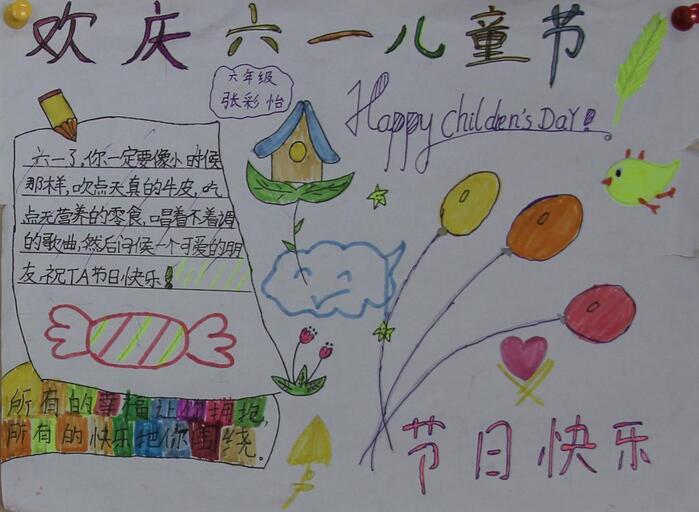 欢庆六一儿童节
六年级
张彩怡
Happy Childen's DaY!
六一了,你一定要像小时候
那样,吹点天真的牛皮,吃
点无营养的零食,唱着不着调
的歌曲,然后问候一个可爱的朋
友,祝TA节日快乐!
所有的幸福让你拥抱,
所有的快乐把你围绕.
节日快乐